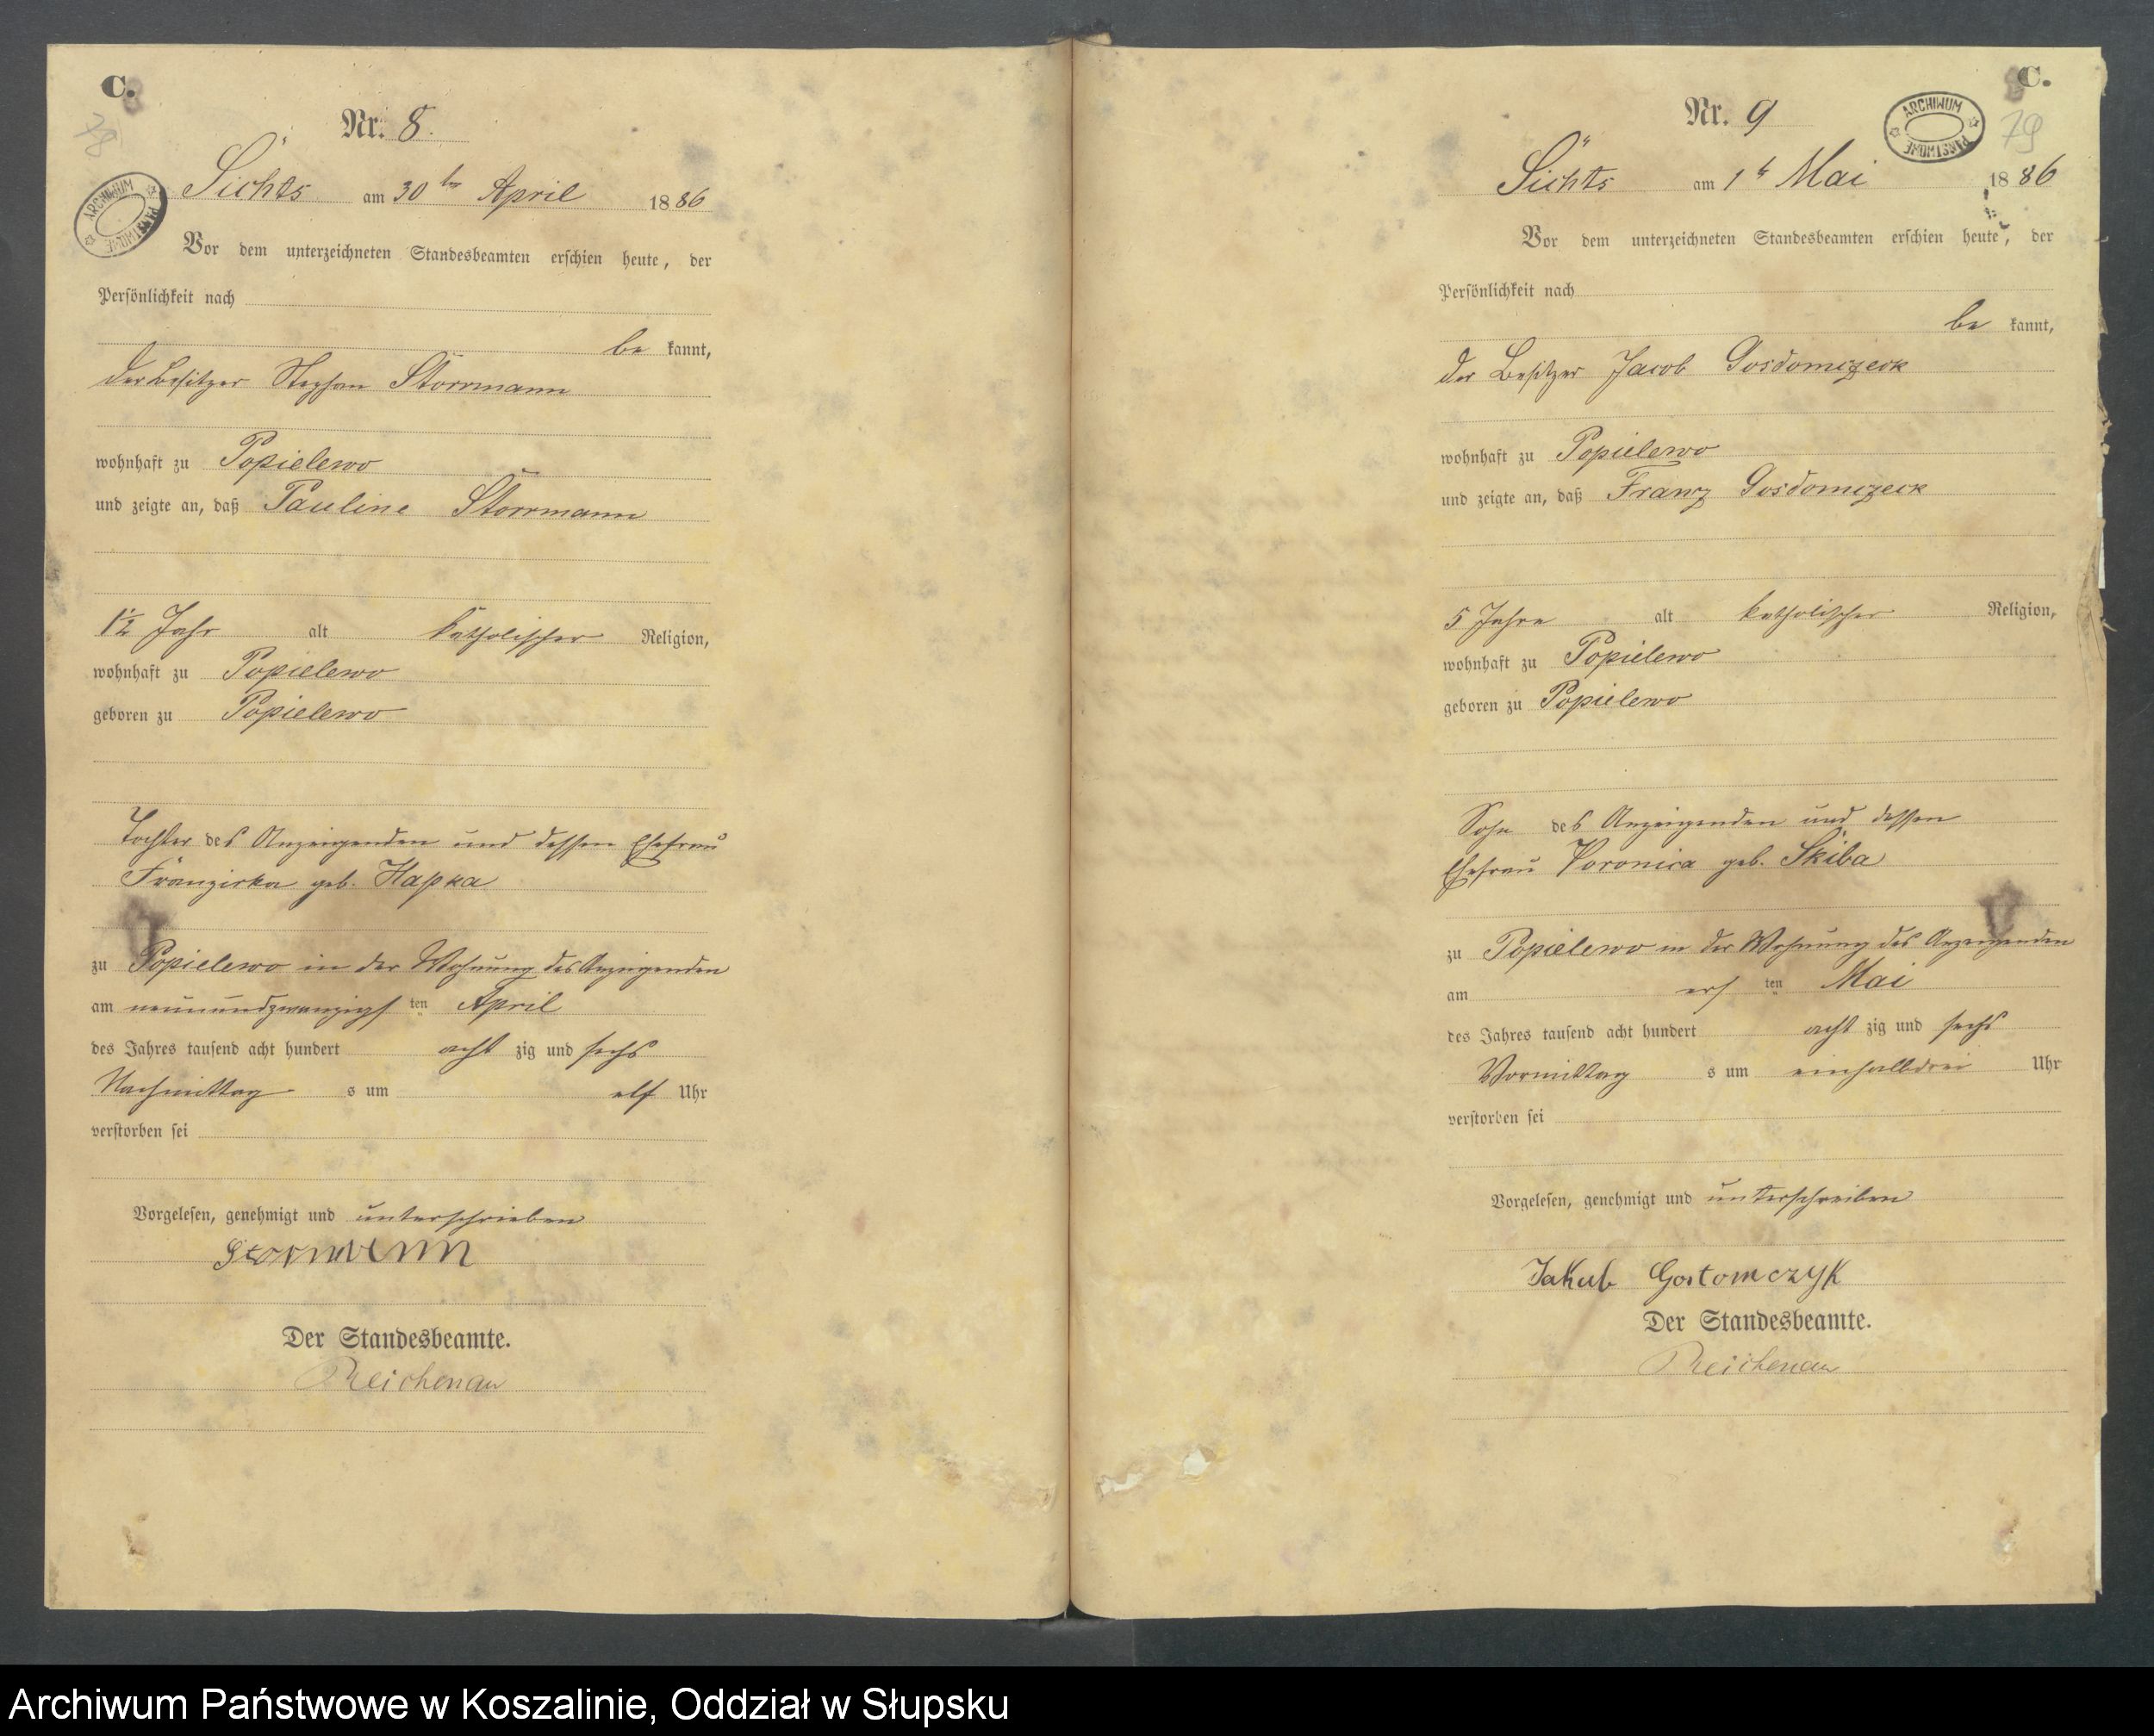 C.
78
Nr. 8.
ARCHIWUM PAŃSTWOWE
Süchts am 30ten April 1886
Vor dem unterzeichneten Standesbeamten erschien heute, der
Persönlichkeit nach
be kannt,
der Besitzer Stephan Störmann
wohnhaft zu Popielewo
und zeigte an, daß Pauline Störmann
1½ Jahr alt katholischer Religion,
wohnhaft zu Popielewo
geboren zu Popielewo
Tochter des Anzeigenden und dessen Ehefrau
Franziska geb. Hapka
zu Popielewo in der Wohnung des Anzeigenden
am neunundzwanzigs ten April
des Jahres tausend acht hundert acht zig und sechs
Nachmittag s um elf Uhr
verstorben sei
Vorgelesen, genehmigt und unterschrieben
Der Standesbeamte.
Reichenau
C.
79
Nr. 9
ARCHIWUM PAŃSTWOWE
Süchts am 1t Mai 1886
Vor dem unterzeichneten Standesbeamten erschien heute, der
Persönlichkeit nach
be kannt,
der Besitzer Jacob Gosdomczeck
wohnhaft zu Popielewo
und zeigte an, daß Franz Gosdomczeck
5 Jahre alt katholischer Religion,
wohnhaft zu Popielewo
geboren zu Popielewo
Sohn des Anzeigenden und dessen
Ehefrau Veronica geb. Skiba
zu Popielewo in der Wohnung des Anzeigenden
am ers ten Mai
des Jahres tausend acht hundert acht zig und sechs
Vormittag s um einhalbdrei Uhr
verstorben sei
Vorgelesen, genehmigt und unterschreiben
Jakub Gostomczyk
Der Standesbeamte.
Reichenau
Archiwum Państwowe w Koszalinie, Oddział w Słupsku